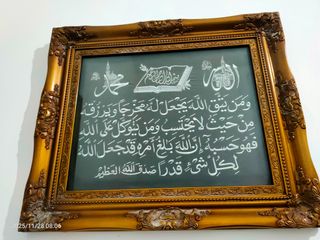 الله
محمد
ومن يتق الله يجعل له مخرجا ويرزقه
من حيث لا يحتسب ومن يتوكل على الله
فهو حسبه إن الله بالغ أمره قد جعل الله
لكل شيء قدرا صدق الله العظيم
25/11/28 08:06